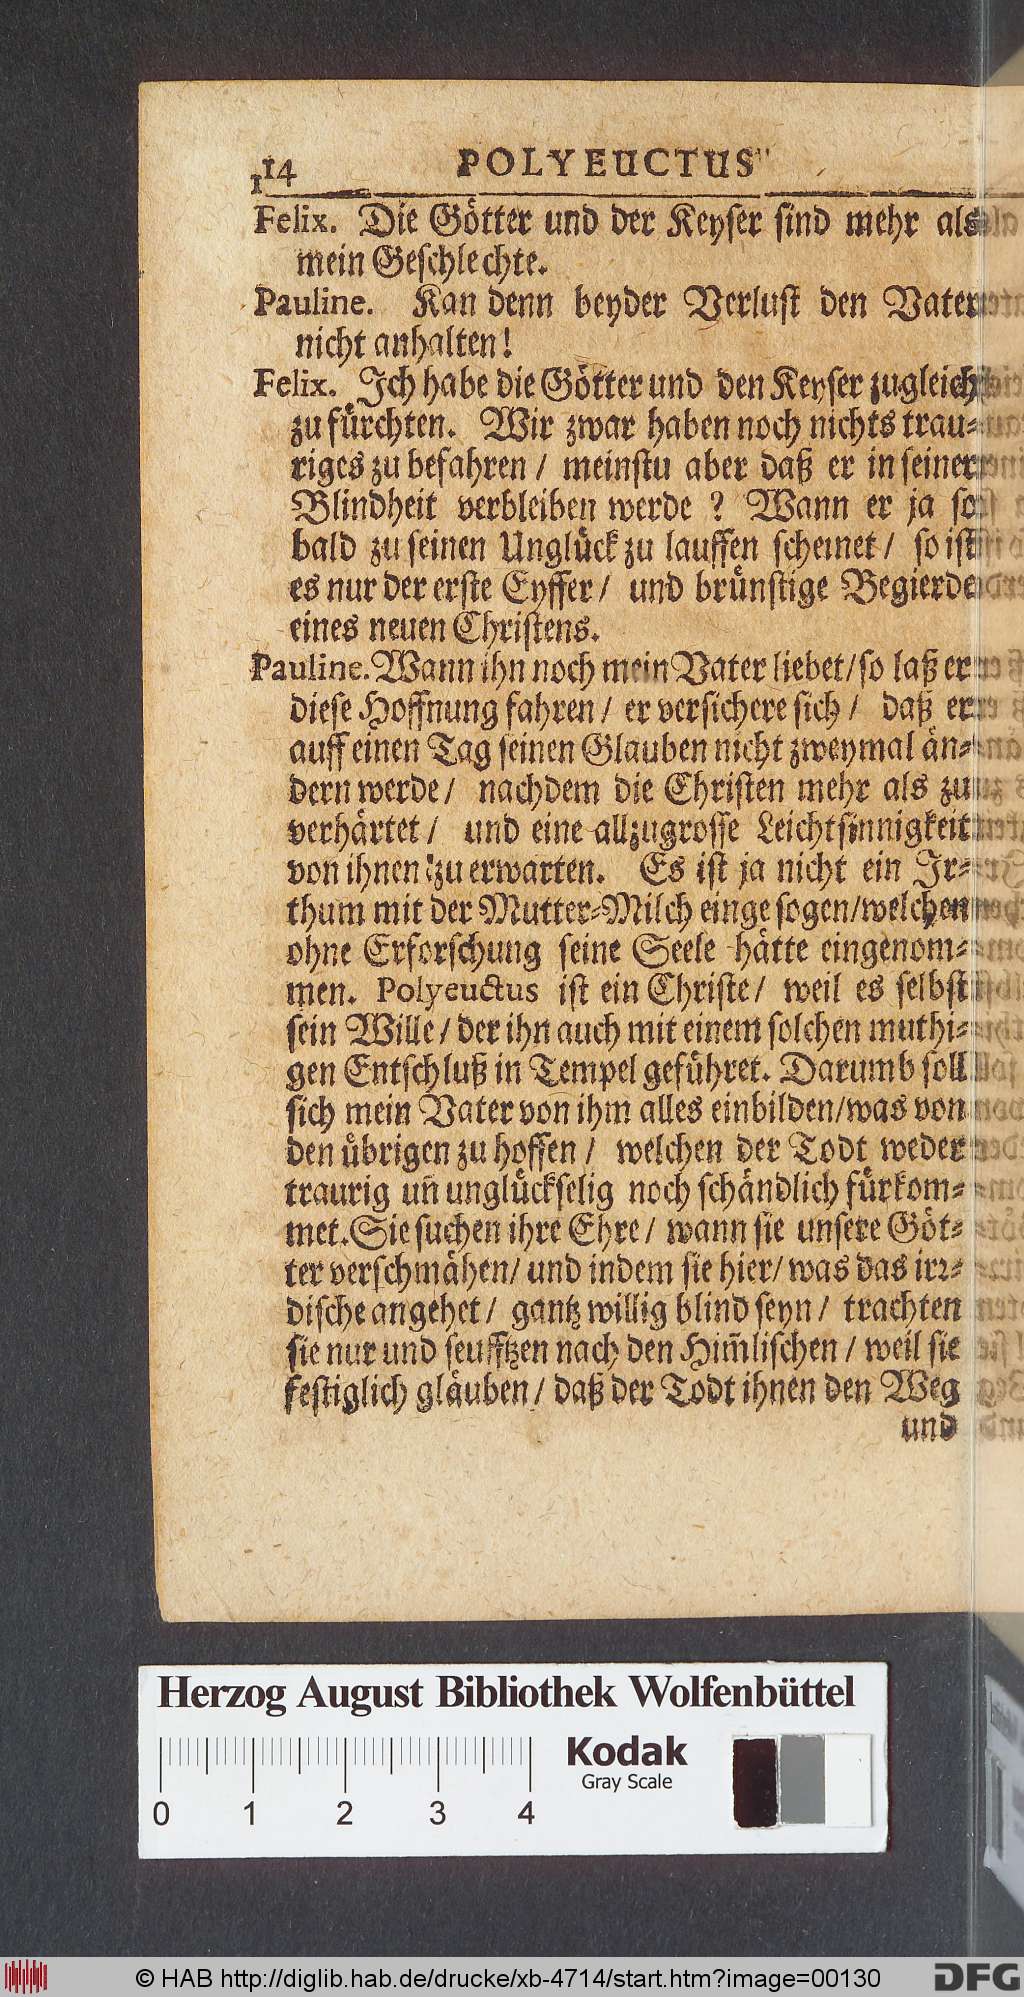 114 POLYEUCTUS
Felix. Die Götter und der Keyser sind mehr als
mein Geschlechte.
Pauline. Kan denn beyder Verlust den Vater
nicht anhalten!
Felix. Ich habe die Götter und den Keyser zugleich
zu fürchten. Wir zwar haben noch nichts trau-
riges zu befahren / meinstu aber daß er in seiner
Blindheit verbleiben werde ? Wann er ja so
bald zu seinen Unglück zu lauffen scheinet / so ist
es nur der erste Eyffer / und brünstige Begierde
eines neuen Christens.
Pauline. Wann ihn noch mein Vater liebet / so laß er
diese Hoffnung fahren / er versichere sich / daß er
auff einen Tag seinen Glauben nicht zweymal än-
dern werde / nachdem die Christen mehr als zu
verhärtet / und eine allzugrosse Leichtsinnigkeit
von ihnen zu erwarten. Es ist ja nicht ein Ir-
thum mit der Mutter-Milch einge sogen / welchen
ohne Erforschung seine Seele hätte eingenom-
men. Polyeuctus ist ein Christe / weil es selbst
sein Wille / der ihn auch mit einem solchen muthi-
gen Entschluß in Tempel geführet. Darumb soll
sich mein Vater von ihm alles einbilden / was von
den übrigen zu hoffen / welchen der Todt weder
traurig uñ unglückselig noch schändlich fürkom-
met. Sie suchen ihre Ehre / wann sie unsere Göt-
ter verschmähen / und indem sie hier / was das irr-
dische angehet / gantz willig blind seyn / trachten
sie nur und seufftzen nach den Him̃lischen / weil sie
festiglich gläuben / daß der Todt ihnen den Weg
und
Herzog August Bibliothek Wolfenbüttel
Kodak
Gray Scale
0 1 2 3 4
© HAB http://diglib.hab.de/drucke/xb-4714/start.htm?image=00130
DFG